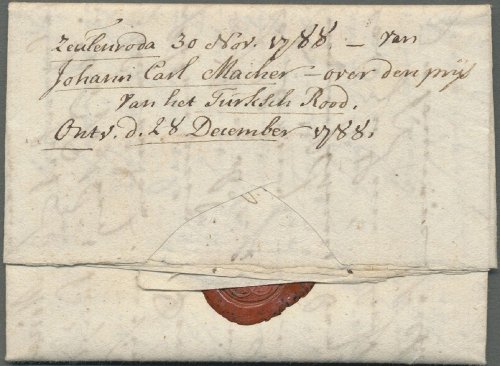 Zeulenroda 30 Nov. 1788. — van
Johann Carl Macher — over den prijs
van het Turksch Rood.
Ontv. d. 28 December 1788.